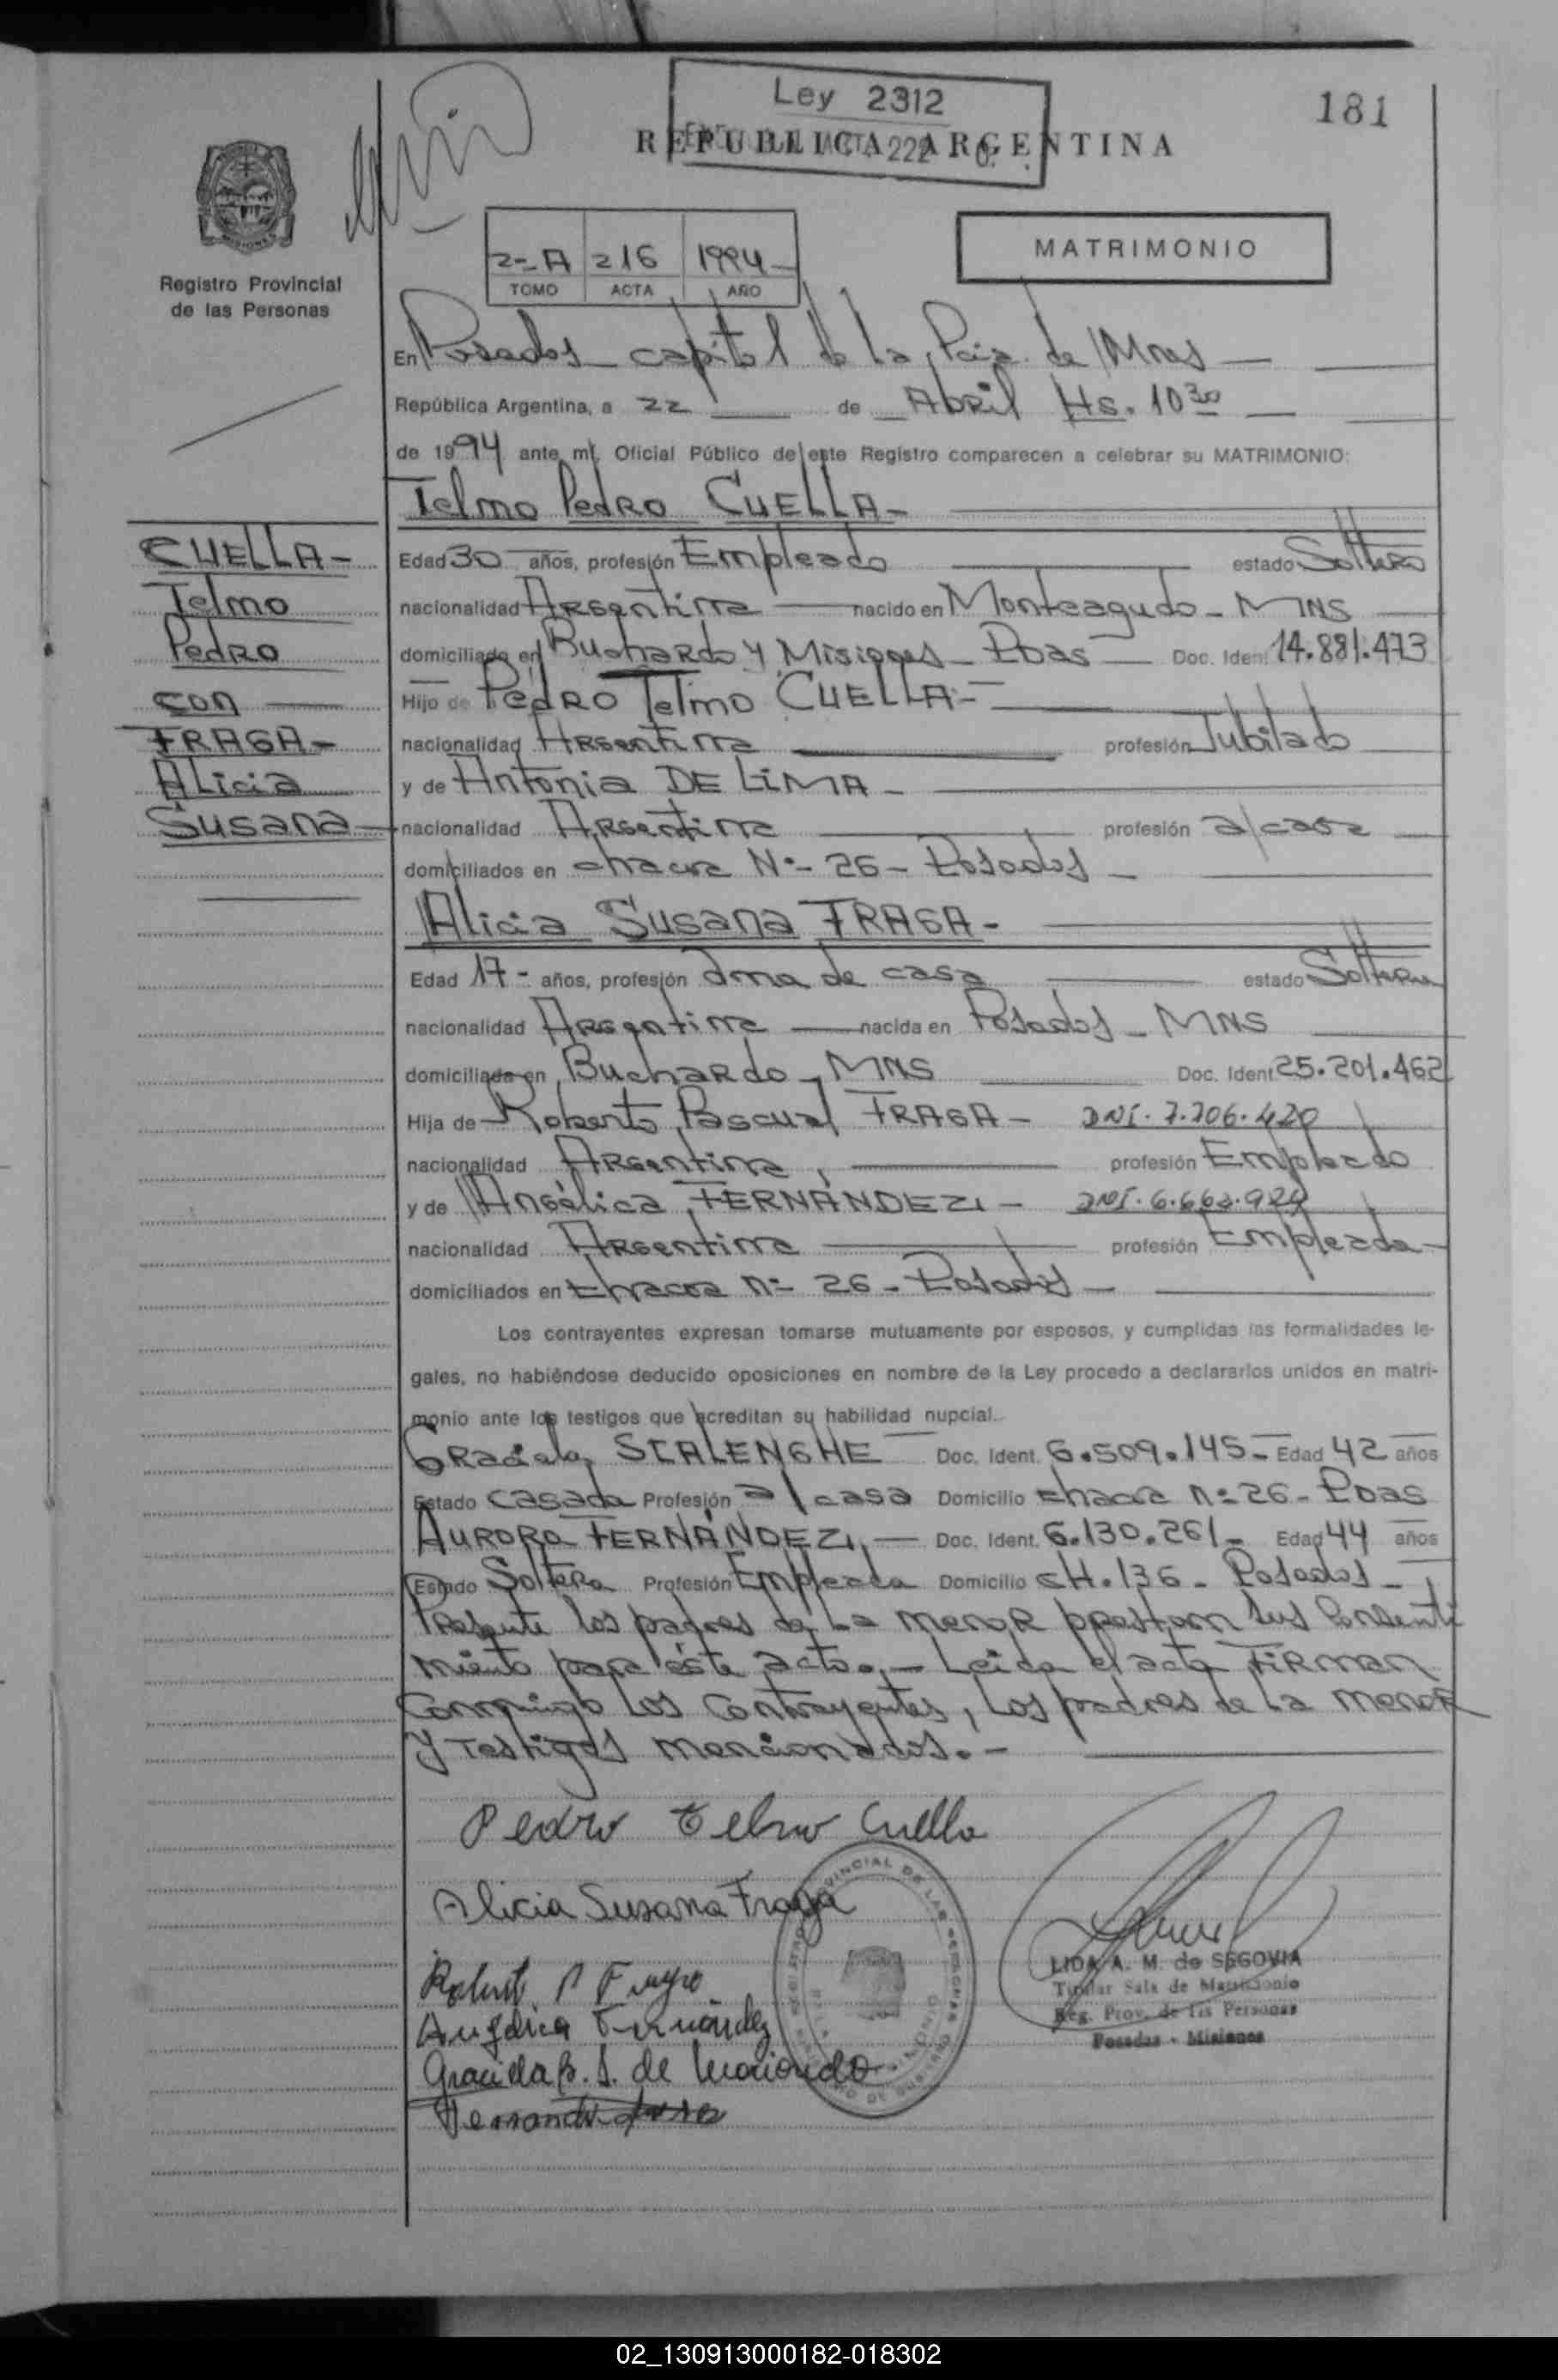 Ley 2312
181
REPUBLICA ARGENTINA
MISIONES
Registro Provincial
de las Personas
2-A 216 1994-
TOMO ACTA AÑO
MATRIMONIO
En Posadas capital de la Pcia. de Mnes
República Argentina, a 22 de Abril Hs. 10 30
de 1994 ante mí, Oficial Público de este Registro comparecen a celebrar su MATRIMONIO:
Telmo Pedro CUELLA-
CUELLA-
Telmo
Pedro
con
FRAGA-
Alicia
Susana
Edad 30 años, profesión Empleado estado Soltero
nacionalidad Argentina nacido en Monteagudo - MNS
domiciliado en Buchardo y Misiones - Pdas Doc. Ident. 14.881.473
Hijo de Pedro Telmo CUELLA-
nacionalidad Argentina profesión Jubilado
y de Antonia DE LIMA -
nacionalidad Argentina profesión a/casa
domiciliados en chacra Nº- 26 - Posadas -
Alicia Susana FRAGA-
Edad 17- años, profesión ama de casa estado Soltera
nacionalidad Argentina nacida en Posadas - MNS
domiciliada en Buchardo - MNS Doc. Ident 25.201.462
Hija de Roberto Pascual FRAGA - DNI. 7.706.420
nacionalidad Argentina, profesión Empleado
y de Angélica FERNÁNDEZ - DNI. 6.663.929
nacionalidad Argentina profesión Empleada-
domiciliados en chacra nº- 26 - Posadas -
Los contrayentes expresan tomarse mutuamente por esposos, y cumplidas las formalidades le-
gales, no habiéndose deducido oposiciones en nombre de la Ley procedo a declararlos unidos en matri-
monio ante los testigos que acreditan su habilidad nupcial.
Graciela SCALENGHE Doc. Ident. 6.509.145- Edad 42 años
Estado Casada Profesión a/casa Domicilio chacra nº 26 - Pdas
AURORA FERNÁNDEZ, - Doc. Ident. 6.130.261- Edad 44 años
Estado Soltera Profesión Empleada Domicilio CH. 136 - Posadas -
Presente los padres de la menor prestam sus Consenti
miento para éste acto. - Leida el acta Firman
conmigo los contrayentes, los padres de la menor
y testigos mencionados. -
Pedro Telmo Cuella
Alicia Susana Fraga
Angélica Fernández
LIDA A. M. de SEGOVIA
Titular Sala de Matrimonio
Reg. Prov. de las Personas
Posadas - Misiones
02_130913000182-018302